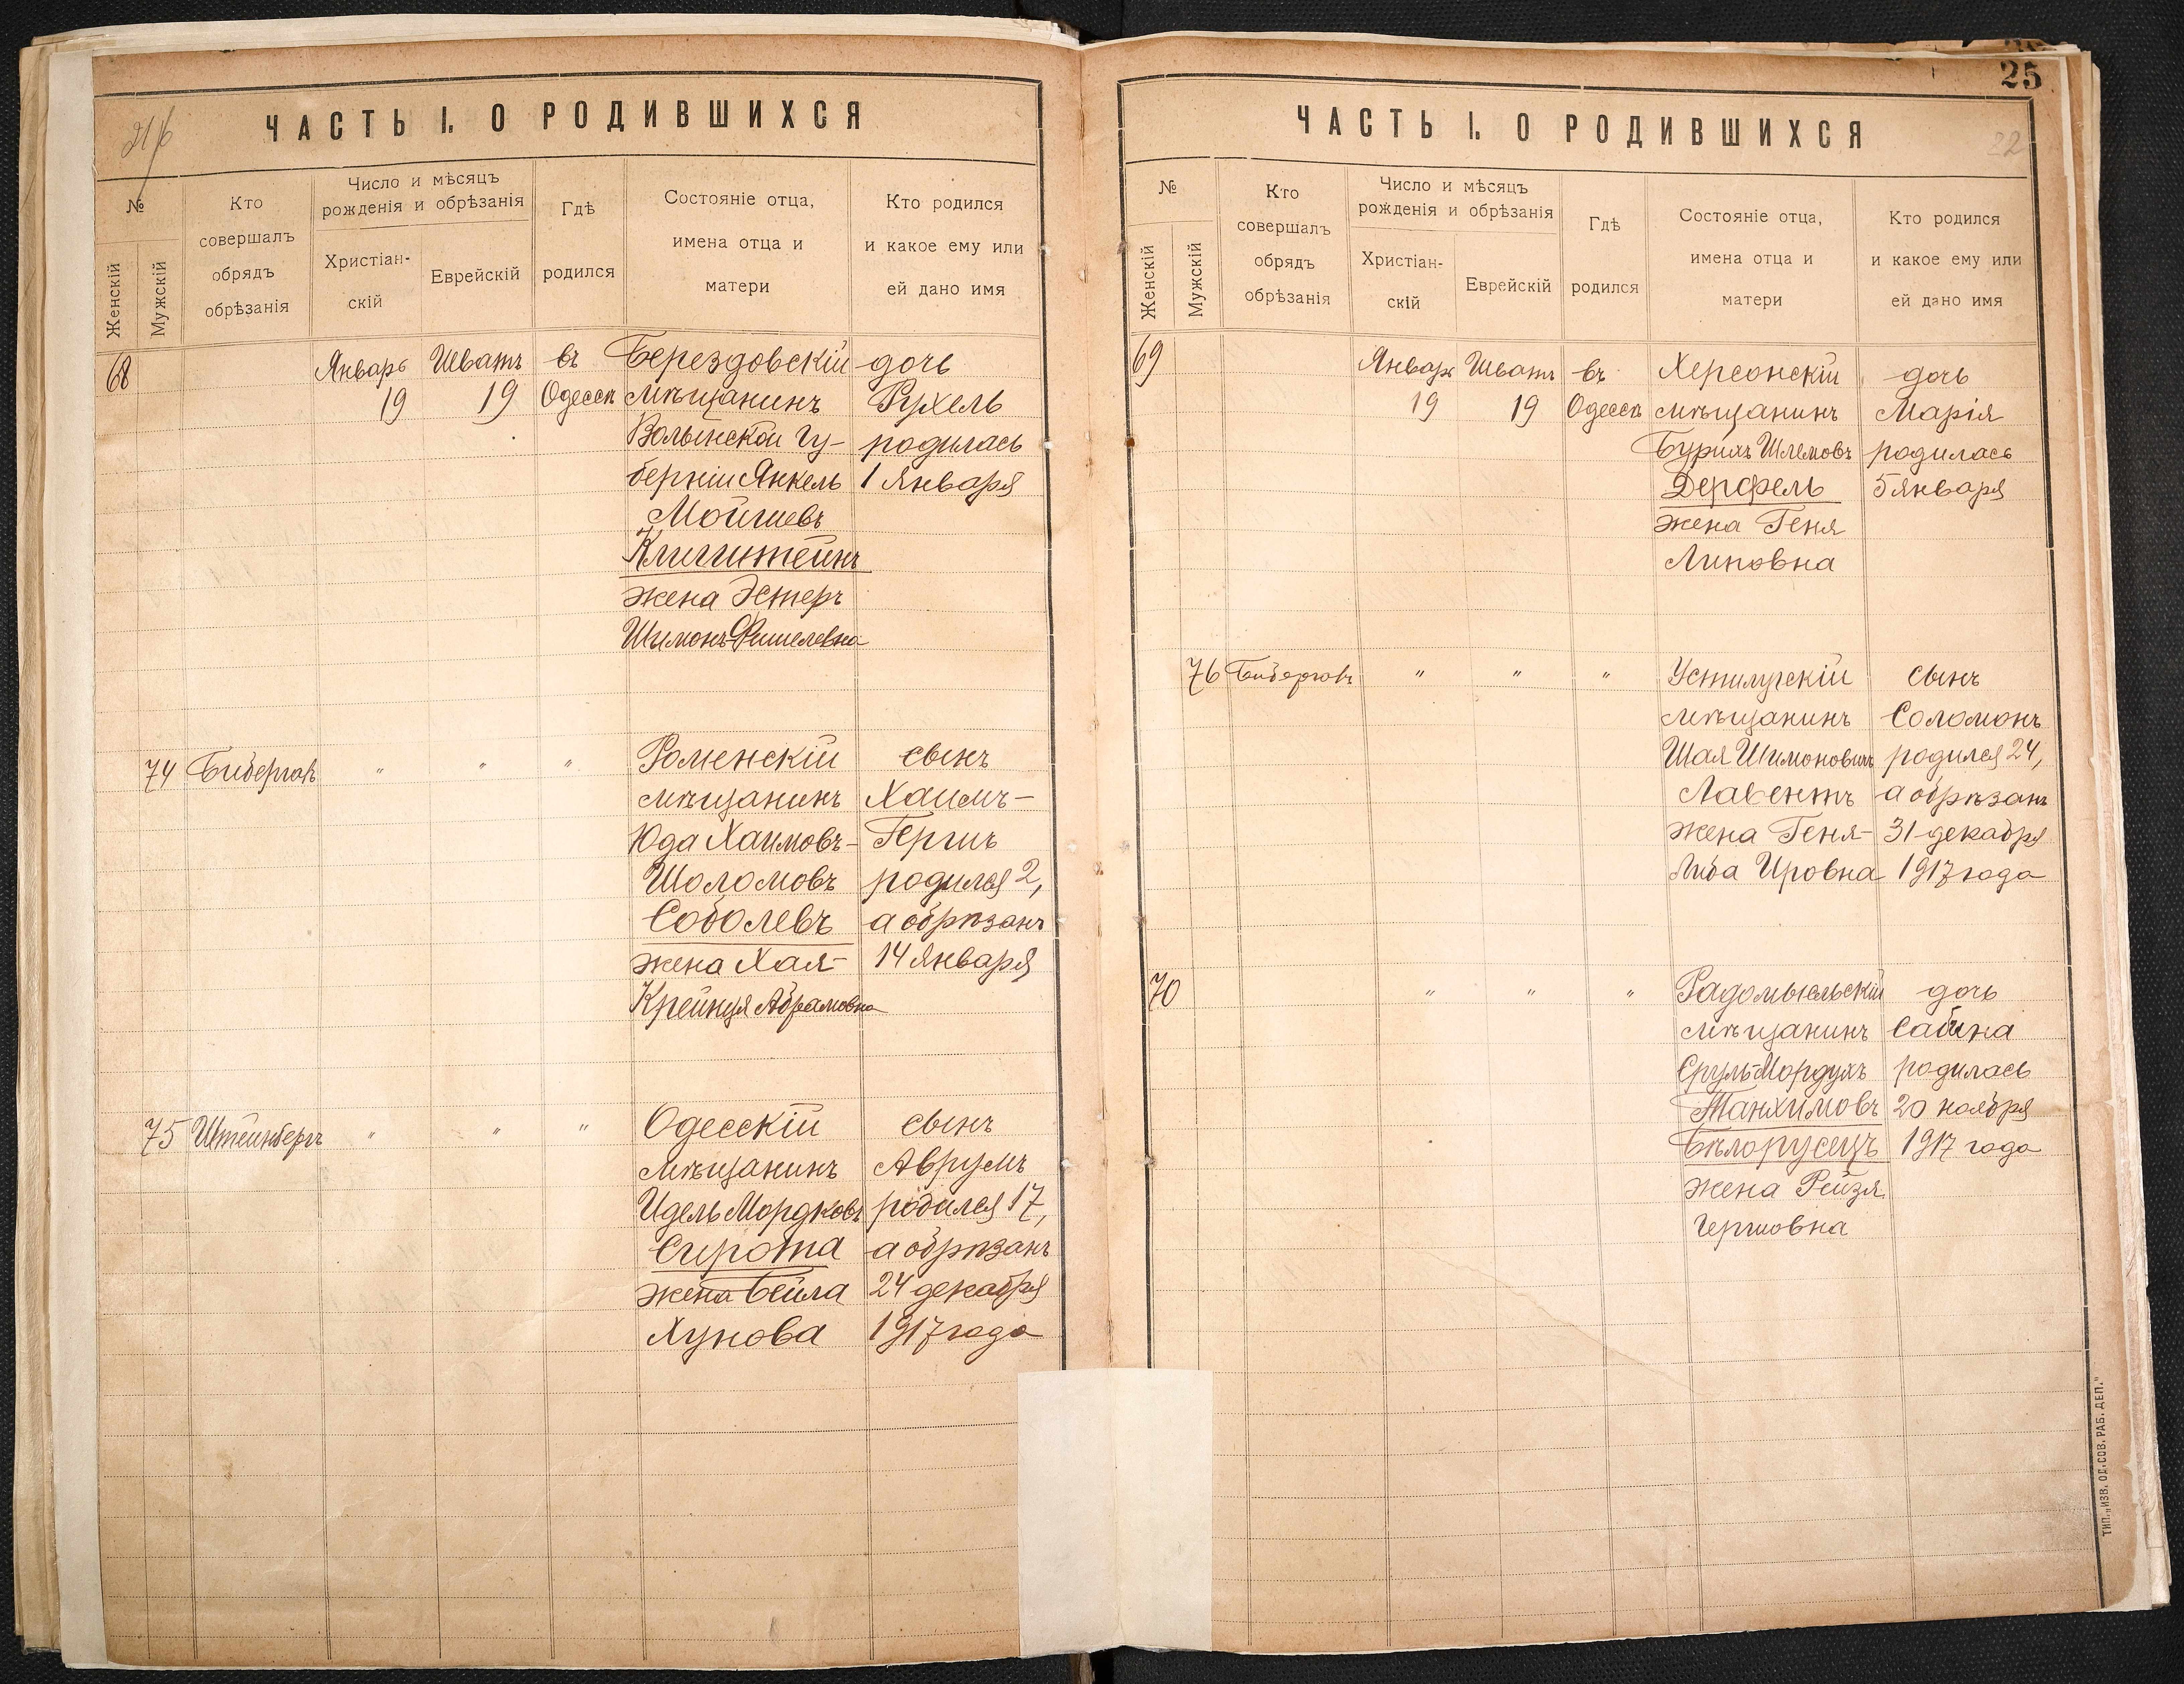 ЧАСТЬ I. О РОДИВШИХСЯ
№
Женскій
Мужскій
Кто
совершалъ
обрядъ
обрѣзанія
Число и мѣсяцъ
рожденія и обрѣзанія
Христіан-
скій
Еврейскій
Гдѣ
родился
Состояніе отца,
имена отца и
матери
Кто родился
и какое ему или
ей дано имя
68 Январь Шватъ въ Берездовскій дочь
19 19 Одессѣ мѣщанинъ Рухель
Волынской гу- родилась
берніи Янкель 1 января
Мойшевъ
Клигштейнъ
жена Эстеръ
Шимонъ-Фишелевна
74 " " " Роменскій сынъ
мѣщанинъ Хаимъ-
Юда Хаимовъ- Гершъ
Шоломовъ родился 2,
Соболевъ а обрѣзанъ
жена Хая- 14 января
Крейнця Абрамовна
75 Штейнбергъ " " " Одесскій сынъ
мѣщанинъ Аврумъ
Идель Мордковъ родился 17,
Сирота а обрѣзанъ
жена Бейла 24 декабря
Хунова 1917 года
25
22
ЧАСТЬ I. О РОДИВШИХСЯ
№
Женскій
Мужскій
Кто
совершалъ
обрядъ
обрѣзанія
Число и мѣсяцъ
рожденія и обрѣзанія
Христіан-
скій
Еврейскій
Гдѣ
родился
Состояніе отца,
имена отца и
матери
Кто родился
и какое ему или
ей дано имя
69 Январь Шватъ въ Херсонскій дочь
19 19 Одессѣ мѣщанинъ Марія
Бурихъ Шлемовъ родилась
Дерфель 5 января
жена Геня
Липовна
76 " " " Устилугскій сынъ
мѣщанинъ Соломонъ
Шая Шимоновичъ родился 24,
Лавентъ а обрѣзанъ
жена Геня- 31 декабря
Либа Ицовна 1917 года
70 " " " Радомысльскій дочь
мѣщанинъ Сабина
Сруль-Мордухъ родилась
Танхимовъ 20 ноября
Бѣлорусецъ 1917 года
жена Рейзя
Гершовна
ТИП. „ИЗВ. ОД. СОВ. РАБ. ДЕП."